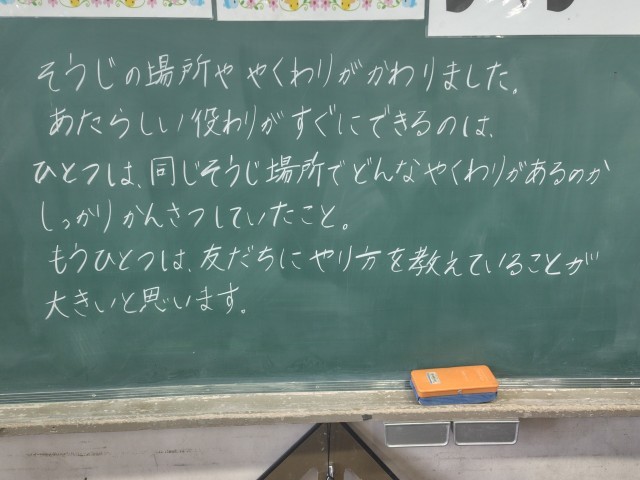 そうじの場所ややくわりがかわりました。
あたらしい役わりがすぐにできるのは、
ひとつは、同じそうじ場所でどんなやくわりがあるのか
しっかりかんさつしていたこと。
もうひとつは、友だちにやり方を教えていることが
大きいと思います。